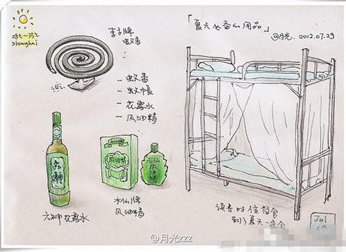 28℃~35℃
Shanghai
「夏天必备的用品」
@月光. 2012.07.29
李字牌
蚊香
- 蚊香
- 蚊帐
- 花露水
- 风油精
六神
六神花露水
水仙牌
风油精
读书时住宿舍
到了夏天一定会
Jul
@月光zzz